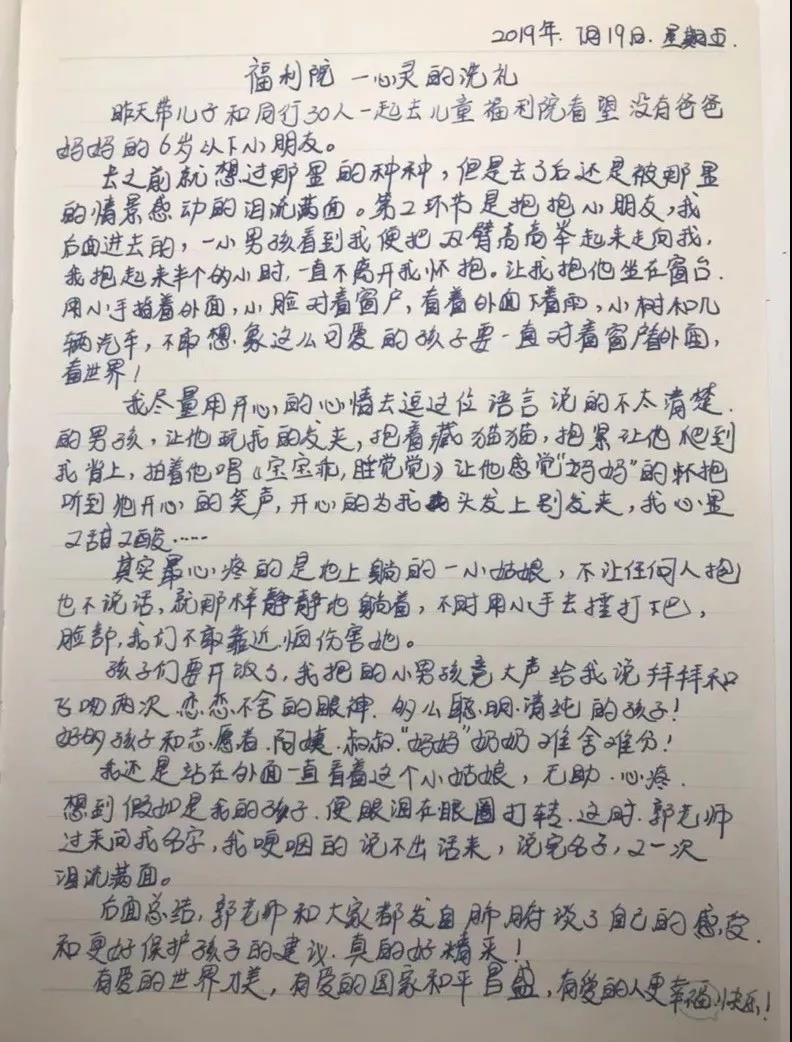 2019年.7月19日.星期五.
福利院 一心灵的洗礼
昨天带儿子和同行30人一起去儿童福利院看望没有爸爸
妈妈的6岁以下小朋友。
去之前就想过那里的种种，但是去了后还是被那里
的情景感动的泪流满面。第2环节是抱抱小朋友，我
后面进去的，一小男孩看到我便把双臂高高举起来走向我，
我抱起来半个多小时，一直不离开我怀抱。让我抱他坐在窗台.
用小手指着外面，小脸对着窗户，看着外面下着雨，小树和几
辆汽车，不敢想象这么可爱的孩子要一直对着窗户看外面，
看世界！
我尽量用开心的心情去逗这位语言说的不太清楚.
的男孩，让他玩我的发夹，抱着藏猫猫，抱紧让他爬到
我背上，拍着他唱《宝宝乖，睡觉觉》让他感觉"妈妈"的怀抱
听到他开心的笑声，开心的为我头发上别发夹，我心里
又甜又酸……
其实最心疼的是地上躺的一小姑娘，不让任何人抱
也不说话，就那样静静地躺着，不时用小手去捶打下巴，
脸部，我们不敢靠近怕伤害她。
孩子们要开饭了，我抱的小男孩竟大声给我说拜拜和
飞吻两次.恋恋不舍的眼神.多么聪明.清纯的孩子！
好多孩子和志愿者.阿姨.叔叔."妈妈"奶奶难舍难分！
我还是站在外面一直看着这个小姑娘，无助.心疼.
想到假如是我的孩子.便眼泪在眼圈打转.这时.郭老师
过来问我名字，我哽咽的说不出话来，说完名子，又一次
泪流满面。
后面总结，郭老师和大家都发自肺腑谈了自己的感受.
和更好保护孩子的建议.真的好精采！
有爱的世界才美，有爱的国家和平昌盛，有爱的人更幸福快乐！